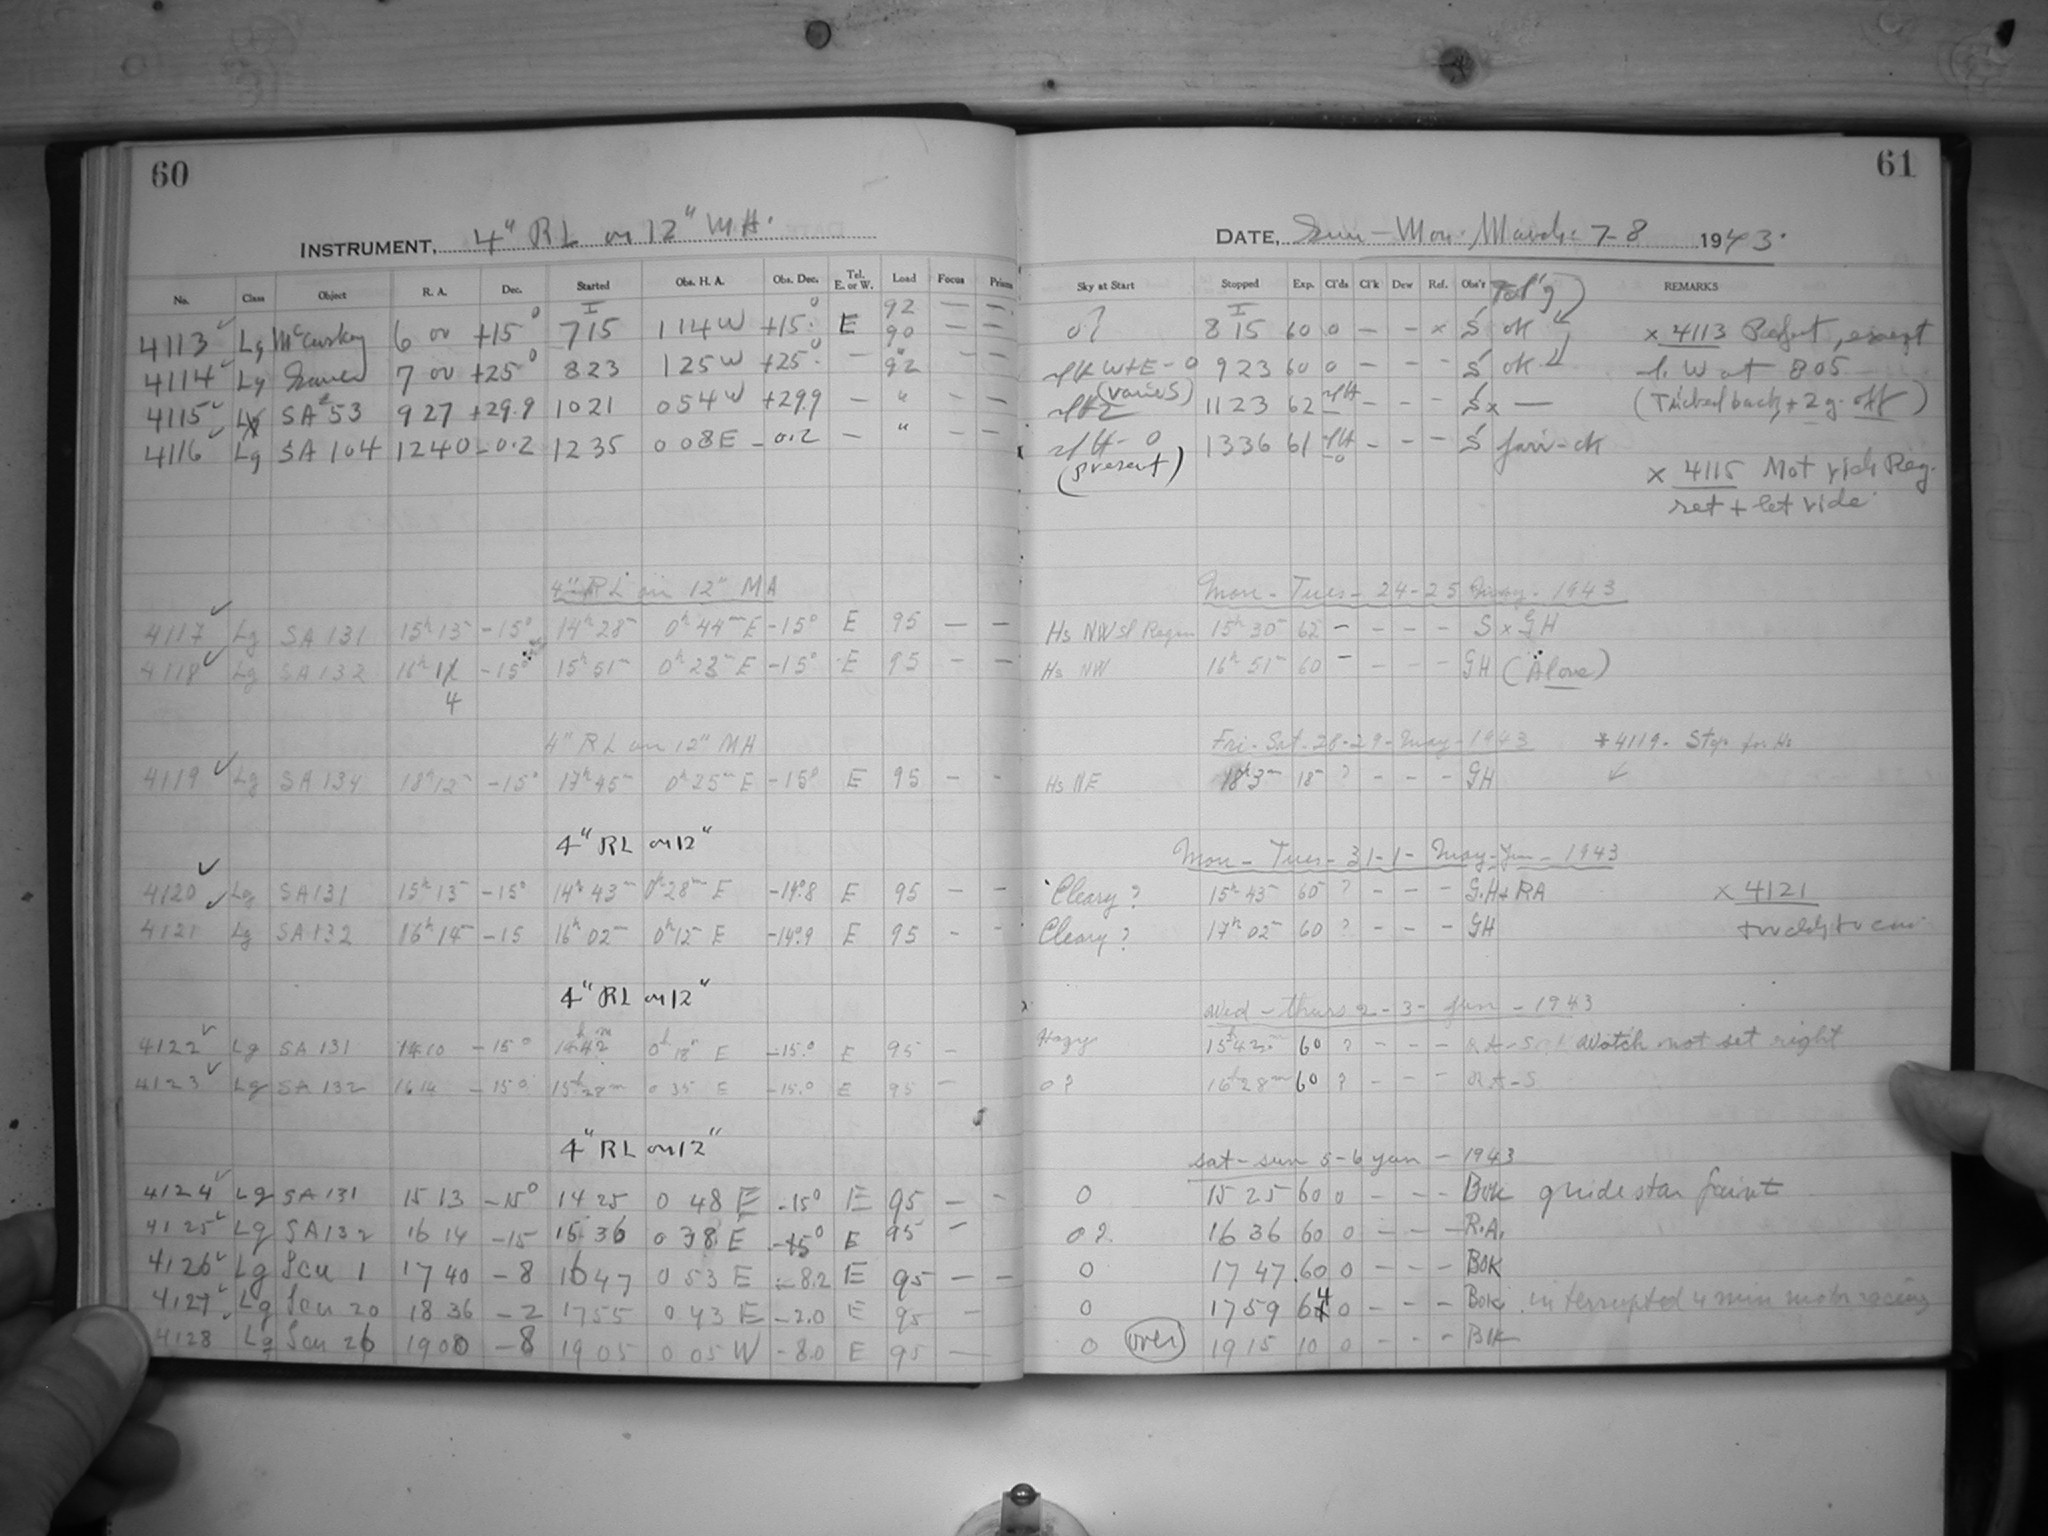 60
INSTRUMENT, 4" RL on 12" MA.
No. Class Object R. A. Dec. Started Obs. H. A. Obs. Dec. Tel. E. or W. Load Focus Prisms
I 92 — —
4113 Lg McCuskey 6 00 +15° 715 1 14 W +15° E 90 — —
4114 Lg 7 00 +25° 823 1 25 W +25° — 92 — —
4115 SA 53 9 27 +29.9 1021 0 54 W +29.9 — " — —
4116 Lg SA 104 1240 -0.2 1235 0 08 E -0.2 — " — —
4" RL on 12" MA
4117 Lg SA 131 15h 15 -15° 14h 28m 0h 44m E -15° E 95 — —
4118 Lg SA 132 16h -15° 15h 51m 0h 23m E -15° E 95 — —
4
4" RL on 12" MA
4119 Lg SA 134 18h 12m -15° 17h 45m 0h 25m E -15° E 95 - -
4" RL on 12"
4120 Lg SA 131 15h 13m -15° 14h 43m 0h 28m E -14°.8 E 95 - -
4121 Lg SA 132 16h 14m -15 16h 02m 0h 12m E -14°.9 E 95 - -
4" RL on 12"
4122 Lg SA 131 -15° 14h 42m 0h 18m E -15.° E 95 -
4123 Lg SA 132 16 14 -15° 15h 28m 0 35 E -15.° E 95 -
4" RL on 12"
4124 Lg SA 131 15 13 -15° 14 25 0 48 E -15° E 95 - -
4125 Lg SA 132 16 14 -15 15 36 0 38 E -15° E 95 -
4126 Lg Scu 1 17 40 -8 16 47 0 53 E -8.2 E 95 — —
4127 Lg Scu 20 18 36 -2 17 55 0 43 E -2.0 E 95 —
4128 Lg Scu 26 19 00 -8 19 05 0 05 W -8.0 E 95 —
61
DATE, Sun - Mon. March 7-8 1943.
Sky at Start Stopped Exp. Cl'ds Cl'k Dew Ref. Obs'r Fol'g REMARKS
I
0? 8 15 60 0 — - × S ok × 4113 Perfect, except
W+E - 0 9 23 60 0 — - - S ok W at 805
(varies) 1123 62 - - - S × — (Tricked back + 2 g. off)
0 1336 61 - - - S fair-ok
(present)
× 4115 Not
set + let ride
Mon - Tues - 24-25 May - 1943
Hs NW 15h 30m 62 - - - - S × GH
Hs NW 16h 51m 60 - - - - GH (Alone)
Fri - Sat - 28-29 - May - 1943 *4119. Stop for Hs
Hs NE 18h 3m 18 ? - - - GH
Mon - Tues - 31-1 - May-Jun - 1943
Cleary ? 15h 43m 60 ? - - - G.H + RA × 4121
Cleary ? 17h 02m 60 ? - - - GH
Wed - thurs 2 - 3 - Jun - 1943
Hazy 15h 42m 60 ? - - - RA-S Watch not set right
0? 16h 28m 60 ? - - - RA-S
Sat - sun 5-6 Jun - 1943
0 15 25 60 0 - - - Bok guide star faint
0? 16 36 60 0 - - - R.A.
0 17 47 60 0 - - - BOK
0 1759 64 0 - - - Bok interrupted 4 min motor racing
0 (over) 19 15 10 0 - - - BOK